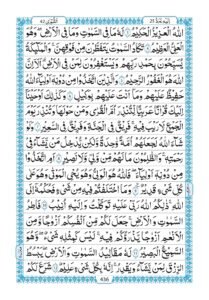 اليه يرد ٢٥
الشورى ٤٢
اللّٰهُ الْعَزِيْزُ الْحَكِيْمُ ۝ لَهٗ مَا فِي السَّمٰوٰتِ وَمَا فِي الْاَرْضِ وَهُوَ
الْعَلِيُّ الْعَظِيْمُ ۝ تَكَادُ السَّمٰوٰتُ يَتَفَطَّرْنَ مِنْ فَوْقِهِنَّ وَالْمَلٰٓئِكَةُ
يُسَبِّحُوْنَ بِحَمْدِ رَبِّهِمْ وَيَسْتَغْفِرُوْنَ لِمَنْ فِي الْاَرْضِ اَلَآ اِنَّ
اللّٰهَ هُوَ الْغَفُوْرُ الرَّحِيْمُ ۝ وَالَّذِيْنَ اتَّخَذُوْا مِنْ دُوْنِهٖٓ اَوْلِيَآءَ اللّٰهُ
حَفِيْظٌ عَلَيْهِمْ وَمَآ اَنْتَ عَلَيْهِمْ بِوَكِيْلٍ ۝ وَكَذٰلِكَ اَوْحَيْنَآ
اِلَيْكَ قُرْاٰنًا عَرَبِيًّا لِّتُنْذِرَ اُمَّ الْقُرٰى وَمَنْ حَوْلَهَا وَتُنْذِرَ يَوْمَ
الْجَمْعِ لَا رَيْبَ فِيْهِ فَرِيْقٌ فِي الْجَنَّةِ وَفَرِيْقٌ فِي السَّعِيْرِ ۝ وَلَوْ شَآءَ
اللّٰهُ لَجَعَلَهُمْ اُمَّةً وَّاحِدَةً وَّلٰكِنْ يُّدْخِلُ مَنْ يَّشَآءُ فِيْ
رَحْمَتِهٖ وَالظّٰلِمُوْنَ مَا لَهُمْ مِّنْ وَّلِيٍّ وَّلَا نَصِيْرٍ ۝ اَمِ اتَّخَذُوْا مِنْ
دُوْنِهٖٓ اَوْلِيَآءَ فَاللّٰهُ هُوَ الْوَلِيُّ وَهُوَ يُحْيِ الْمَوْتٰى وَهُوَ عَلٰى
كُلِّ شَيْءٍ قَدِيْرٌ ۝ وَمَا اخْتَلَفْتُمْ فِيْهِ مِنْ شَيْءٍ فَحُكْمُهٗٓ اِلَى
اللّٰهِ ذٰلِكُمُ اللّٰهُ رَبِّيْ عَلَيْهِ تَوَكَّلْتُ وَاِلَيْهِ اُنِيْبُ ۝ فَاطِرُ
السَّمٰوٰتِ وَالْاَرْضِ جَعَلَ لَكُمْ مِّنْ اَنْفُسِكُمْ اَزْوَاجًا وَّمِنَ
الْاَنْعَامِ اَزْوَاجًا يَذْرَؤُكُمْ فِيْهِ لَيْسَ كَمِثْلِهٖ شَيْءٌ وَهُوَ
السَّمِيْعُ الْبَصِيْرُ ۝ لَهٗ مَقَالِيْدُ السَّمٰوٰتِ وَالْاَرْضِ يَبْسُطُ
الرِّزْقَ لِمَنْ يَّشَآءُ وَيَقْدِرُ اِنَّهٗ بِكُلِّ شَيْءٍ عَلِيْمٌ ۝ شَرَعَ لَكُمْ
436